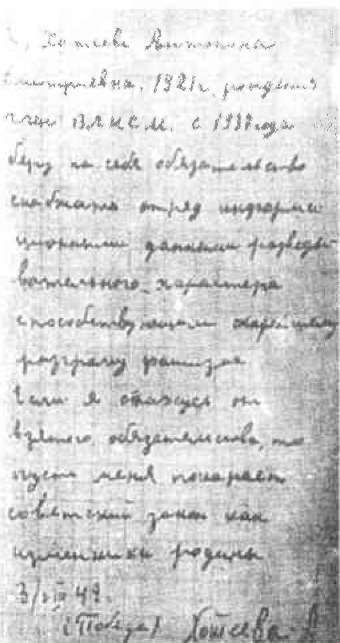 Я, Хотеева Антонина
Дмитриевна, 1921 г. рождения
член ВЛКСМ. с 1937 года
беру на себя обязательство
снабжать отряд информа
ционными данными разведы
вательного характера
способствующими скорейшему
разгрому фашизма
Если я откажусь от
взятого обязательства, то
пусть меня покарает
советский закон как
изменника родины
42.
(Победа) Хотеева